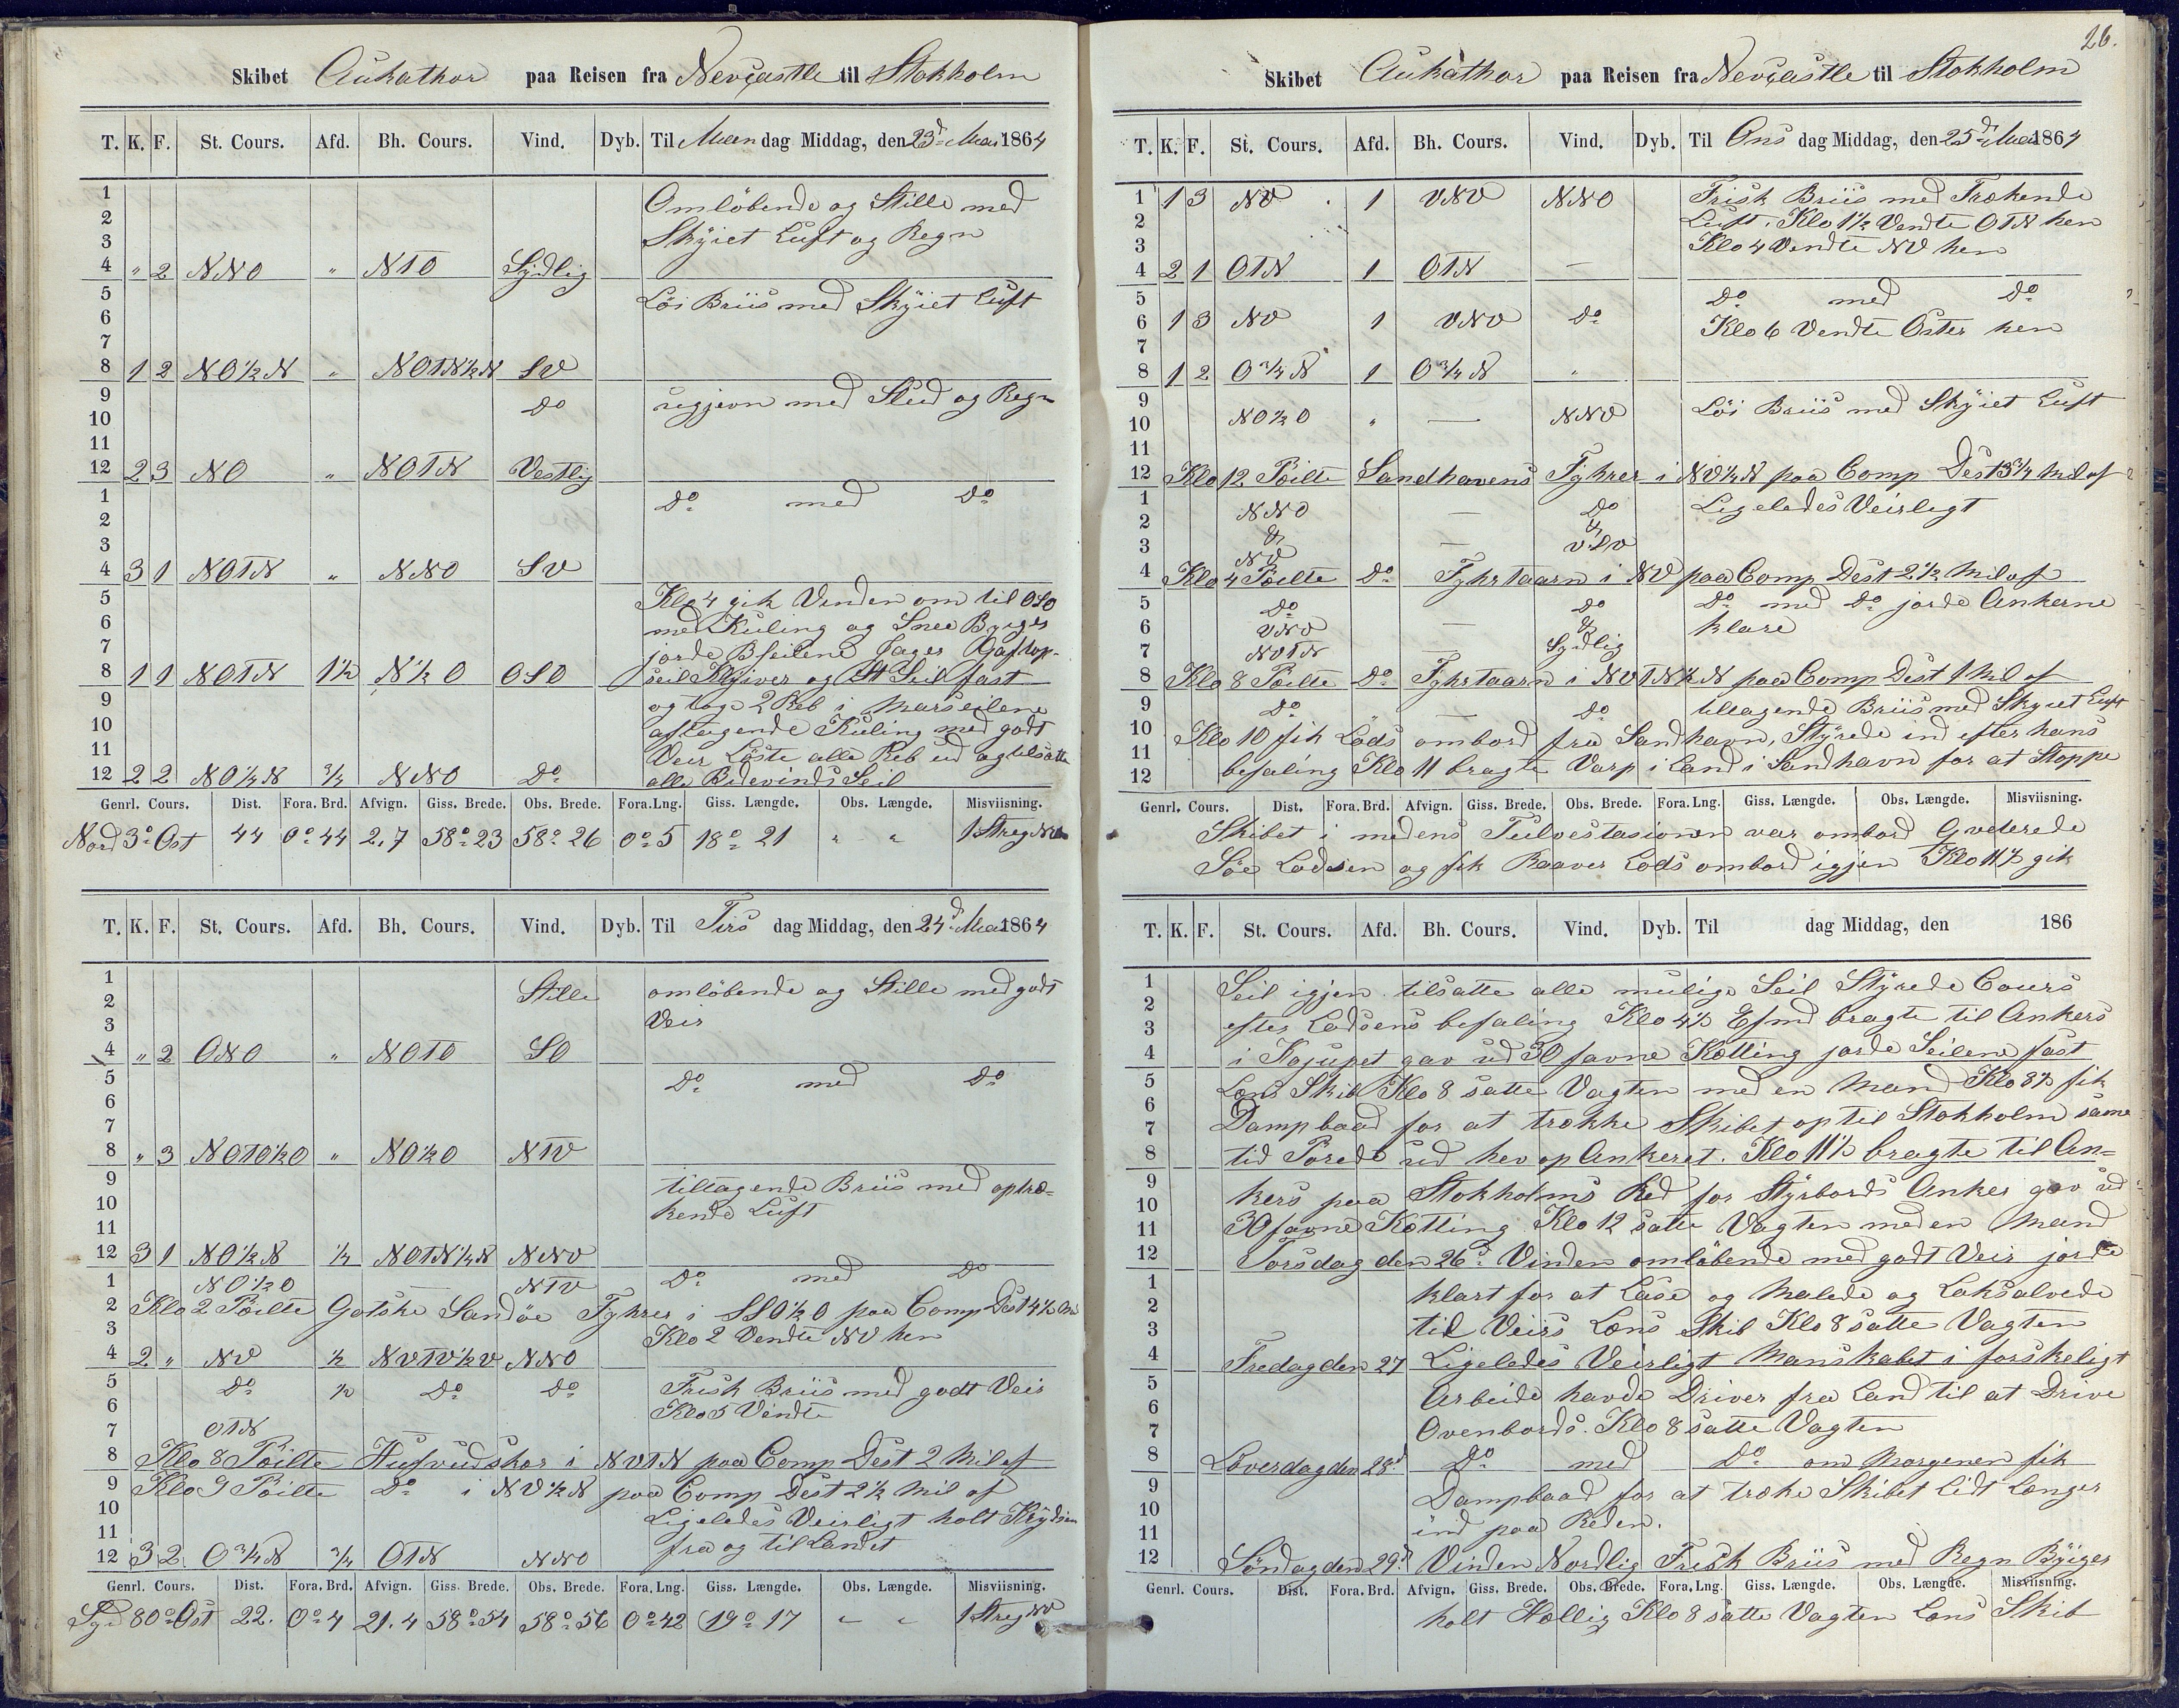 Skibet Aukathor paa Reisen fra Nevcastle til Stokholm
T. K. F. St. Cours. Afd. Bh. Cours. Vind. Dyb. Til Maandag Middag, den 23d Mai 1864
1 Omløbende og Stille med
2 Skÿiet Luft og Regn
3
4 " 2 NNO " NTO Sÿdlig
5 Löi Briis med Skÿiet Luft
6
7
8 1 2 NO½N " NOTN½N SV
9 do med Slud og Regn
10
11
12 2 3 NO " NOTN Vestlig
1 Do med Do
2
3
4 3 1 NOTN " NNO SV
5 Klo 4 gik Vinden om til OSO
6 med Kuling og Snee Byiger
7 jorde Bseilene Jager Gaftop-
8 1 1 NOTN 1½ N½O OSO seil Klÿiver og St Seil fast
9 og toge 2 Reb i Marseilene
10 aftagende Kuling med godt
11 Veir Löste alle Reb ud og tilsatte
12 2 2 NO¼N ¾ NNO Do alle Bidevinds Seil
Genrl. Cours. Dist. Fora. Brd. Afvign. Giss. Brede. Obs. Brede. Fora. Lng. Giss. Længde. Obs. Længde. Misviisning.
Nord 3° Ost 44 0° 44 2,7 58° 23 58° 26 0° 5 18° 21 " " 1 Streg
T. K. F. St. Cours. Afd. Bh. Cours. Vind. Dyb. Til Tirsdag Middag, den 24d Mai 1864
1 Stille omlöbende og Stille med godt
2 Veir
3
4 " 2 ONO " NOTO SO
5 Do med Do
6
7
8 " 3 NOTO½O " NO½O NTV
9 tiltagende Briis med optræ-
10 kende Luft
11
12 3 1 NO½N ½ NOTN½N NNV
1 NO½O — NTV Do med Do
2 Klo 2 Pöilte Gotske Sandöe Fyhrer i SSO½O paa Comp Dest 4½ Mil
3 Klo 2 Vendte NV hen
4 2 " NV ½ NVTV½V NNO
5 Do ½ Do Do Frisk Briis med godt Veir
6 Klo 5 Vendte
7 OTN
8 Klo 8 Pöilte Hufvudskar i NVTN paa Comp Dest 2 Mil af
9 Klo 9 Pöilte Do i NV½N paa Comp Dest 2½ Mil af
10 Ligeledes Veirligt holt Krÿdsen
11 fra og til Landet
12 3 2 O¾N ¾ OTN NNO
Genrl. Cours. Dist. Fora. Brd. Afvign. Giss. Brede. Obs. Brede. Fora. Lng. Giss. Længde. Obs. Længde. Misviisning.
Syd 80° Ost 22. 0° 4 21.4 58° 54 58° 56 0° 42 19° 17 " " 1 Streg NV
26.
Skibet Aukathor paa Reisen fra Nevcastle til Stokholm
T. K. F. St. Cours. Afd. Bh. Cours. Vind. Dyb. Til Onsdag Middag, den 25d Mai 1864
1 1 3 NV 1 VNV NNO Frisk Briis med Trækende
2 Luft. Klo 1½ Vendte OTN hen
3 Klo 4 Vendte NV hen
4 2 1 OTN 1 OTN —
5 Do med Do
6 1 3 NV 1 VNV Do Klo 6 Vendte Öster hen
7
8 1 2 O¾N 1 O¾N "
9 Löi Briis med Skÿiet Luft
10 NO½O " — NNV
11
12 Klo 12 Pöilte Landhavens Fyhrer i NV½N paa Comp Dest 3¾ Mil af
1 NNO — Do Ligeledes Veirligt
2 & &
3 NV — VSV
4 Klo 4 Pöilte Do Fyhrtaarn i NV paa Comp Dest 2½ Mil af
5 Do Do Do med Do jorde Ankerne
6 VNV — & klare
7 NVTN — Sydlig
8 Klo 8 Pöilte Do Fyhrtaarn i NVTN½N paa Comp Dest 1 Mil af
9 Do — Do tiltagende Briis med Skyiet Luft
10 Klo 10 fik Lods ombord fra Sandhavn, Stÿrede ind efter hans
11 befaling Klo 11 bragte Varp i Land i Sandhavn for at Stoppe
12
Genrl. Cours. Dist. Fora. Brd. Afvign. Giss. Brede. Obs. Brede. Fora. Lng. Giss. Længde. Obs. Længde. Misviisning.
Skibet i medens Tulvestasionen var ombord Qveterede
Söe Lodsen og fik Raaver Lods ombord igjen Klo 11½ gik
T. K. F. St. Cours. Afd. Bh. Cours. Vind. Dyb. Til dag Middag, den 186
1 Seil igjen tilsatte alle mulige Seil Stÿrede Cours
2 efter Lodsens befaling Klo 4½ Efmd bragte til Ankers
3
4 i gav ud 30 favne Kætting jorde Seilene fast
5 Læns Skib Klo 8 satte Vagten med en Mand Klo 8½ fik
6 Dampbaad for at trække Skibet op til Stokholm same
7
8 tid Porede ud hev op Ankeret. Klo 11½ bragte til An=
9 kers paa Stokholms Red for Stÿrbords Anker gav ud
10
11 30 favne Kætting Klo 12 satte Vagten med en Mand
12 Torsdag den 26d Vinden omlöbende med godt Veir jorde
1 klart for at Lase og Malede og Laksalvede
2
3 til Veirs Læns Skib Klo 8 satte Vagten
4 Fredag den 27 Ligeledes Veirligt Manskabet i forskeligt
5 Arbeide havde Driver fra Land til at Drive
6
7 Ovenbords. Klo 8 satte Vagten
8 Löverdag den 28d Do med Do om Morgenen fik
9 Dampbaad for at træke Skibet Lidt Længer
10
11 ind paa Reden.
12 Söndag den 29d Vinden Nordlig Frisk Briis med Regn Bÿiger
Genrl. Cours. Dist. Fora. Brd. Afvign. Giss. Brede. Obs. Brede. Fora. Lng. Giss. Længde. Obs. Længde. Misviisning.
holt Hællig Klo 8 satte Vagten Læns Skib